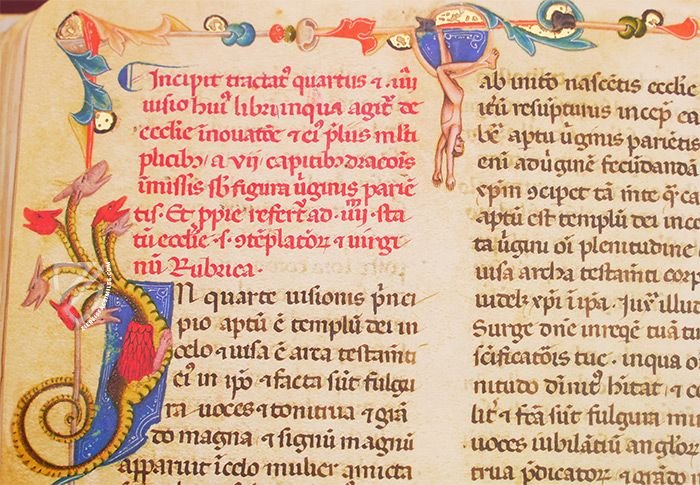 Incipit tractat⁹ quartus ⁊ .iiii
uisio hui⁹ libri inqua agit̃ de
ecclie īnouatōe ⁊ ei⁹ p̄lus m̄lti
plicibꝫ / a vii capitibꝫ draconis
īmissis sb̄ figura ūginis pariē
tis. Et ꝓpie refert̃ ad .iiii. sta
tū ecclie .s. ꝯtēplatoꝝ ⁊ uirgi
nū Rubrica.
IN quarte uisionis p̄nci
pio aptū ē templū dei in
celo ⁊ uisa ē arca testam̄ti
ei⁹ in ip̄o ⁊ facta sūt fulgu
ra uoces ⁊ tonitrua ⁊ grā
do magna ⁊ signū magnū
apparuit ī celo mulier amicta
ab initio nascētis ecclie
itū resūpturus incep̄
bꝫ aptu ūginis pariētis
eni ad ūginē fecūdanda
xp̄m ꝯcipet tā īnte q̄ ca
aptū est templū dei ince
ta ūgini oī plenitudine
uisa archa testam̄ti corp
uidelꝫ xp̄i ī ip̄a. Iux̄ illud
Surge dn̄e in reqē tuā tu
scificatōis tue. inqua o
nitudo diuit⁹ hītat ⁊ c
lit̄ ⁊ fc̄a sūt fulgura mi
uoces iubilātiū angloꝝ
trua p̄dicatoꝝ ⁊ grā